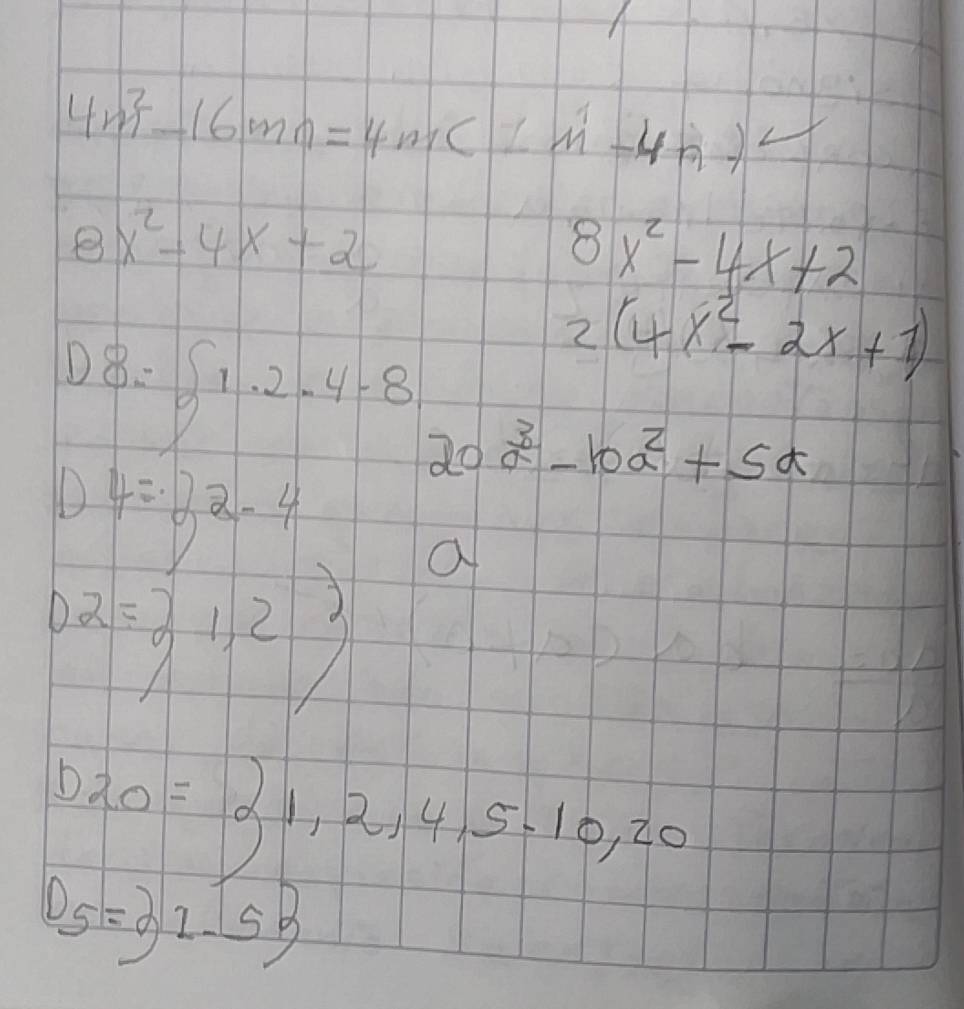 4m² - 16mn = 4m( m - 4n )
8x² - 4x + 2
8x² - 4x + 2
2(4x² - 2x + 1)
D8 = {1.2-4-8
20a³ - 10a² + 5a
D4 = {2-4
a
D2 = {1,2}
D20 = {1,2,4,5-10,20
D5 = {1-5}